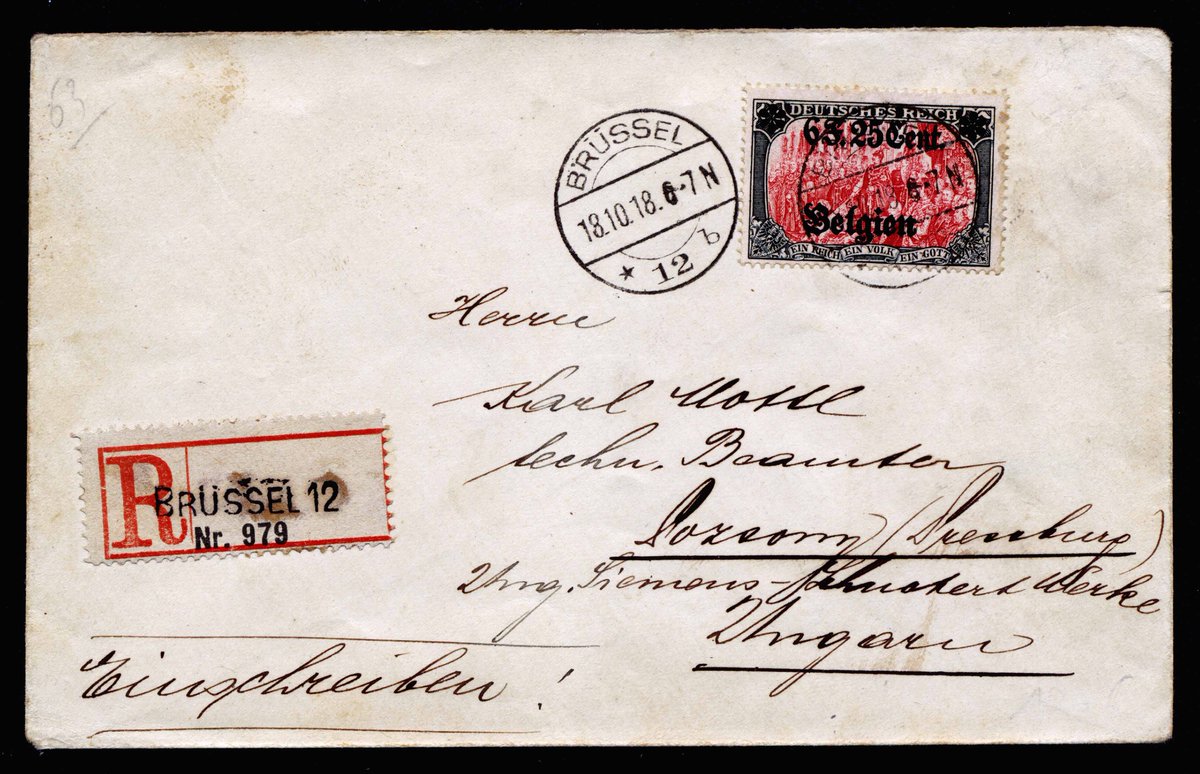 63
BRÜSSEL
18.10.18.6-7N
* 12 b
DEUTSCHES REICH
6F.25Cent.
Belgien
EIN REICH EIN VOLK EIN GOTT
18.6-7N
Herrn
Karl Mottl
techn. Beamter
Pozsony (Pressburg)
Ung. Siemens-Schuckert Werke
Ungarn
R
BRÜSSEL 12
Nr. 979
Einschreiben!